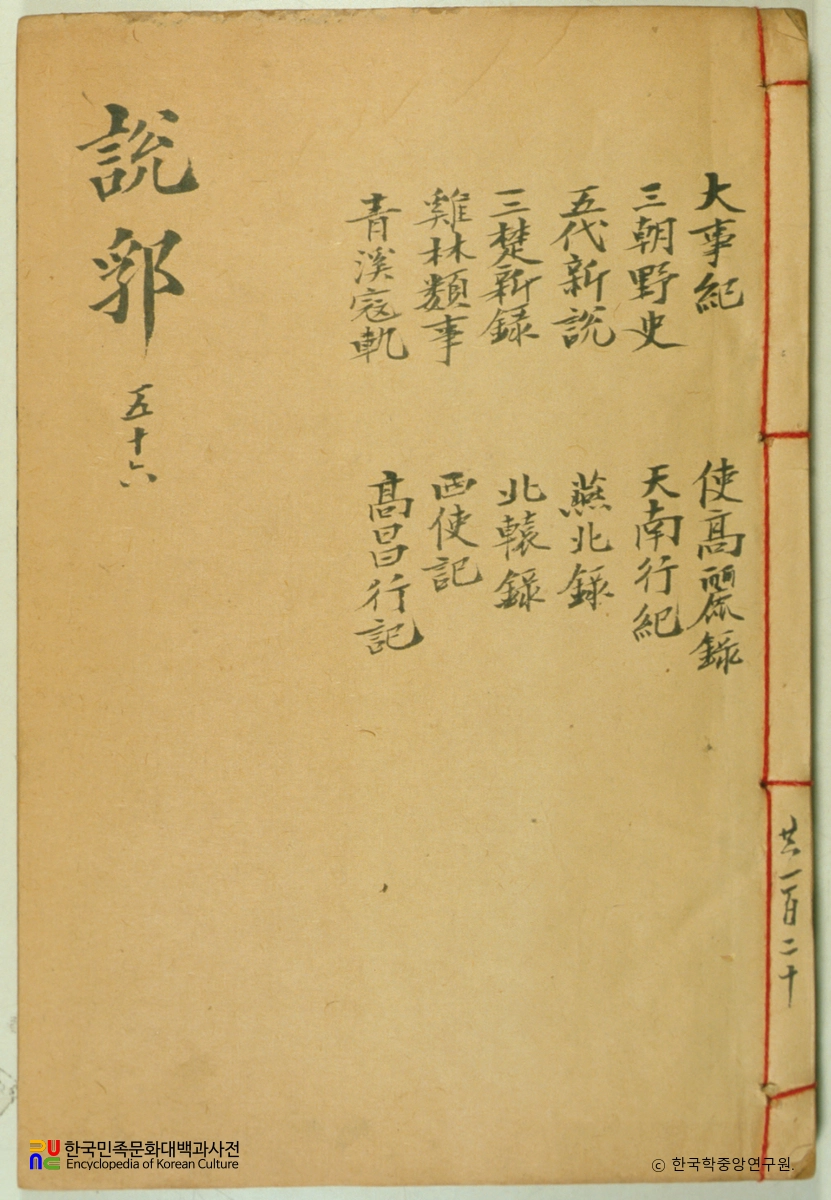 說郛
五十六
大事紀
三朝野史
五代新說
三楚新録
雞林類事
青溪寇軌
使高麗録
天南行紀
燕北録
北轅録
西使記
高昌行記
共一百二十
한국민족문화대백과사전
Encyclopedia of Korean Culture
© 한국학중앙연구원.